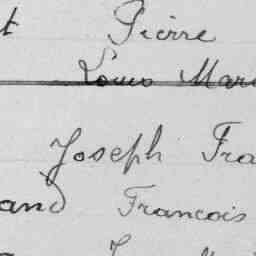 t Pierre
Louis Mar
Joseph Fra
and Francois